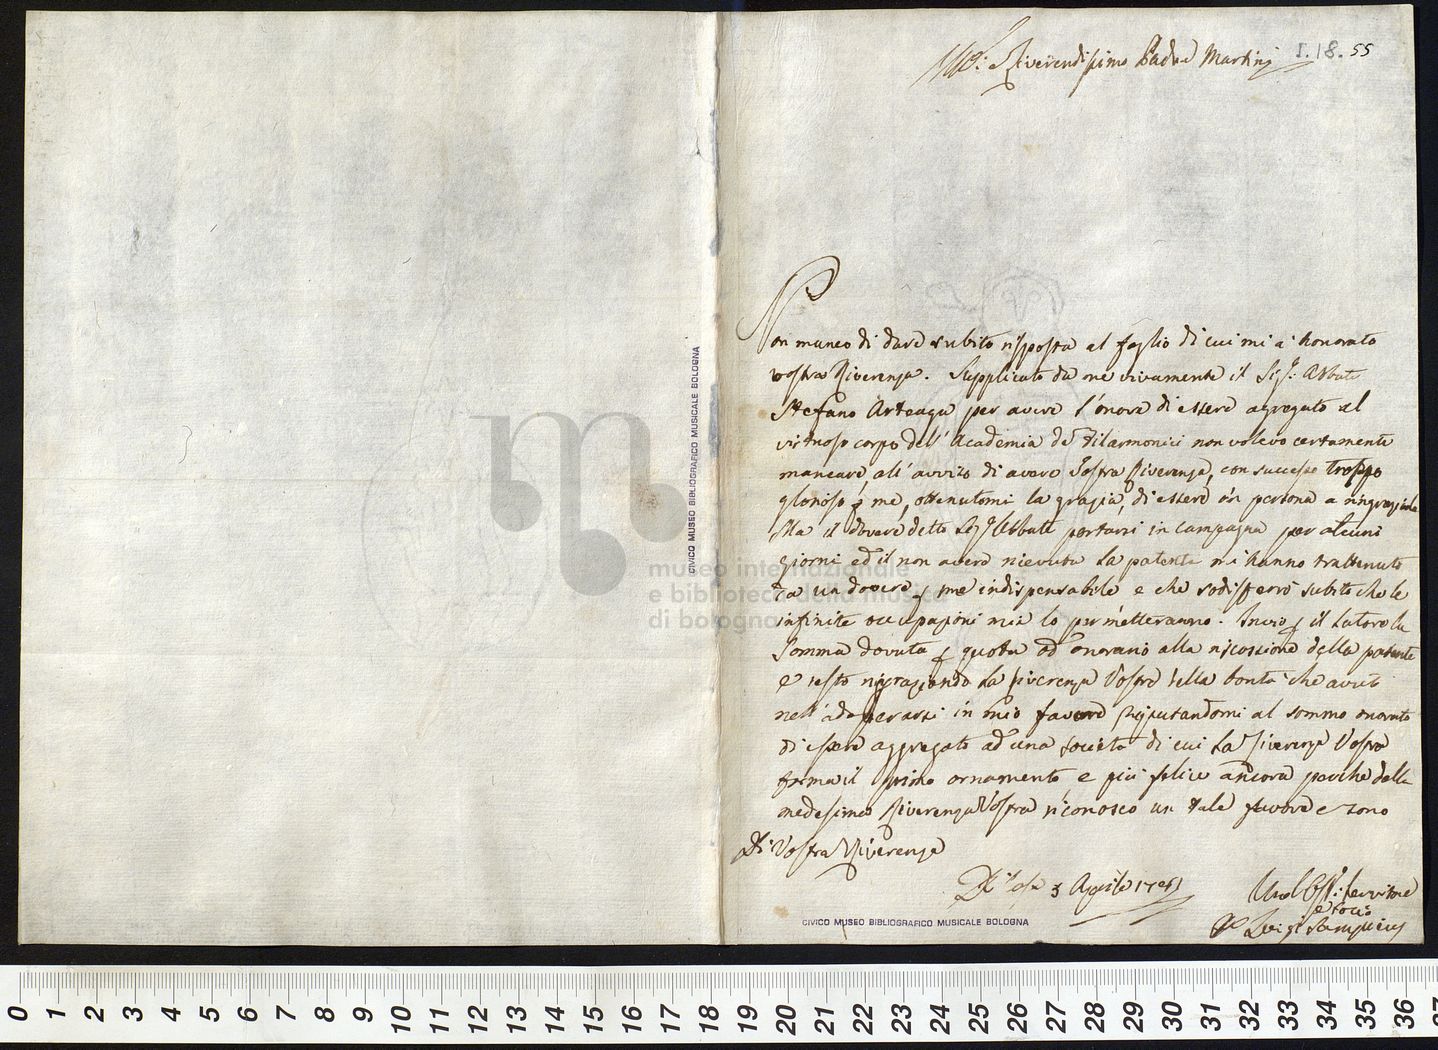 Riverendissimo Padre Martini
I.18.55
Non manco di dare subito risposta al foglio di cui mi à honorato
vostra Riverenza. Supplicato da me vivamente il Sig.r Abbate
Stefano Arteaga per avere l'onore di essere agregato al
virtuoso corpo dell'Academia de Filarmonici non volevo certamente
mancare, all'avviso di avere Vostra Riverenza, con successo troppo
glorioso p me, ottenutomi la grazia, di essere in persona a ringraziarla
Ma il dovere detto Sig.r Abbate portarsi in campagna per alcuni
giorni ed il non avere ricevuta la patente mi hanno trattenuto
da un dovere p me indispensabile e che sodisferò subito che le
infinite occupazioni mie lo permetteranno. Invio p il latore la
somma dovuta p quota ed onorario alla recossione della patente
e resto ringraziando la Riverenza Vostra della bontà che avuto
nell'adoperarsi in mio favore Reputandomi al sommo onorato
di essere aggregato ad una società di cui la Riverenza Vostra
forma il primo ornamento, e più felice ancora perche dalla
medesima Riverenza Vostra riconosco un tale favore e sono
Di Vostra Riverenza
3 Aprile
servitore
e socio
Luigi
CIVICO MUSEO BIBLIOGRAFICO MUSICALE BOLOGNA
CIVICO MUSEO BIBLIOGRAFICO MUSICALE BOLOGNA
museo internazionale
e biblioteca della musica
di bologna
0 1 2 3 4 5 6 7 8 9 10 11 12 13 14 15 16 17 18 19 20 21 22 23 24 25 26 27 28 29 30 31 32 33 34 35 36 37